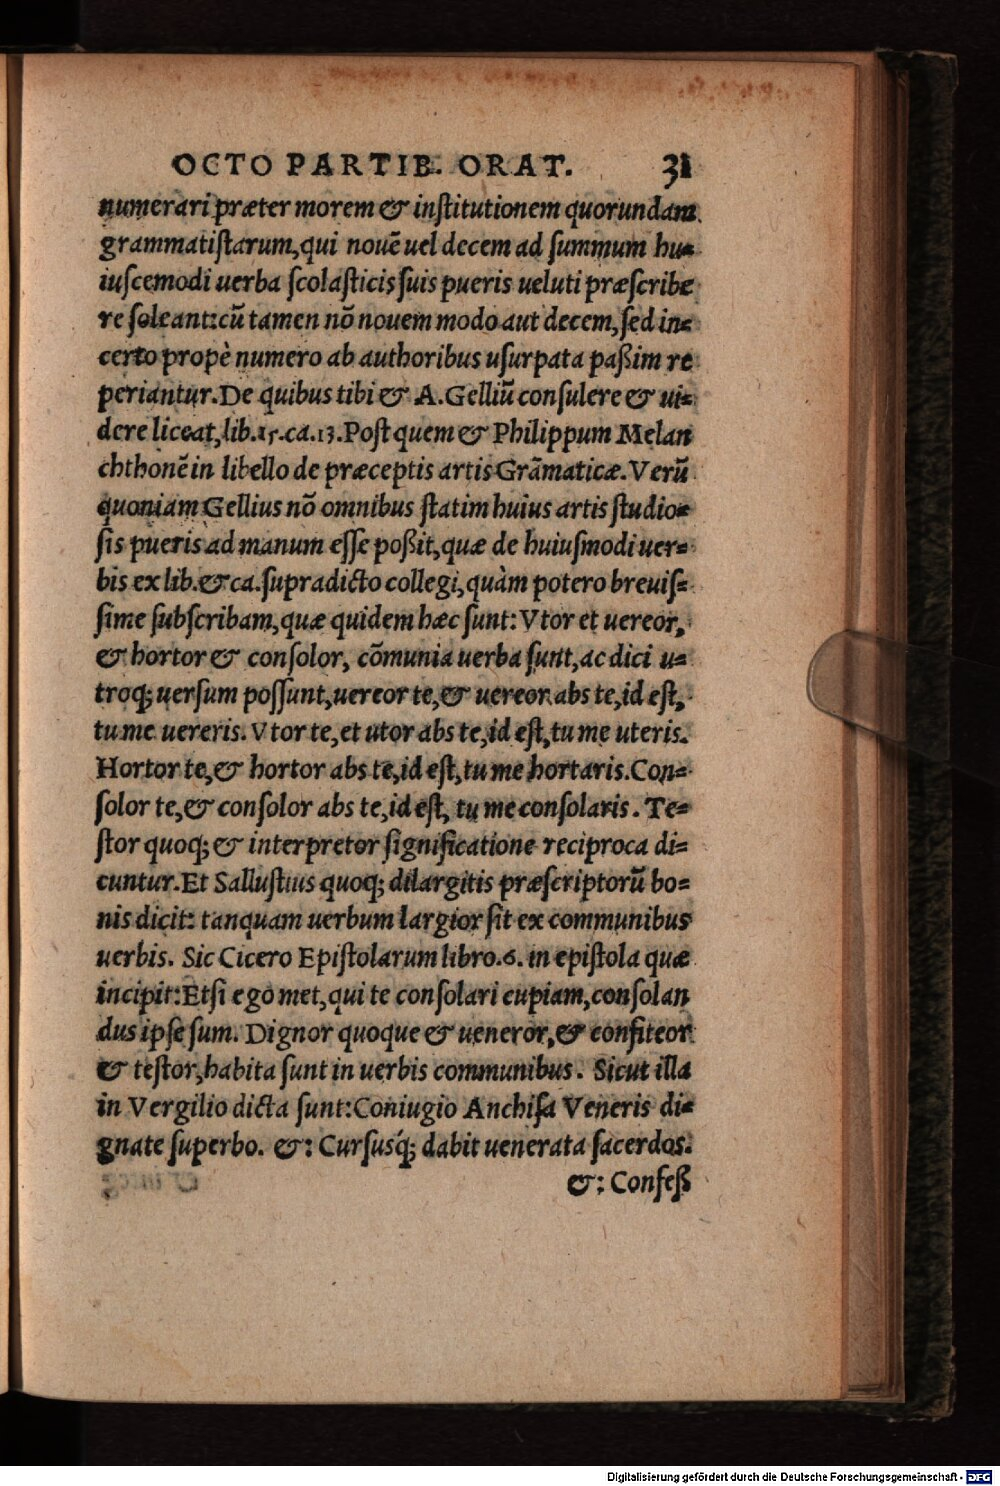 OCTO PARTIB. ORAT. 31
numerari præter morem & inſtitutionem quorundam
grammatiſtarum, qui nouē uel decem ad ſummum hu=
iuſcemodi uerba ſcolaſticis ſuis pueris ueluti præſcribe
re ſoleant: cū tamen nō nouem modo aut decem, ſed in=
certo propè numero ab authoribus uſurpata paßim re
periantur. De quibus tibi & A. Gelliū conſulere & ui=
dere liceat, lib. 15. ca. 13. Poſt quem & Philippum Melan
chthonē in libello de præceptis artis Grāmaticæ. Verū
quoniam Gellius nō omnibus ſtatim huius artis ſtudio=
ſis pueris ad manum eſſe poßit, quæ de huiuſmodi uer=
bis ex lib. & ca. ſupradicto collegi, quàm potero breuiſ=
ſime ſubſcribam, quæ quidem hæc ſunt: Vtor et uereor,
& hortor & conſolor, cōmunia uerba ſunt, ac dici u=
troq; uerſum poſſunt, uereor te, & uereor abs te, id eſt,
tu me uereris. Vtor te, et utor abs te, id eſt, tu me uteris.
Hortor te, & hortor abs te, id eſt, tu me hortaris. Con=
ſolor te, & conſolor abs te, id eſt, tu me conſolaris. Te=
ſtor quoq; & interpretor ſignificatione reciproca di=
cuntur. Et Salluſtius quoq; dilargitis præſcriptorū bo=
nis dicit: tanquam uerbum largior ſit ex communibus
uerbis. Sic Cicero Epiſtolarum libro. 6. in epiſtola quæ
incipit: Etſi egomet, qui te conſolari cupiam, conſolan
dus ipſe ſum. Dignor quoque & ueneror, & confiteor
& teſtor, habita ſunt in uerbis communibus. Sicut illa
in Vergilio dicta ſunt: Coniugio Anchiſa Veneris di=
gnate ſuperbo. &: Curſusq́; dabit uenerata ſacerdos.
&: Confeß
Digitalisierung gefördert durch die Deutsche Forschungsgemeinschaft - DFG